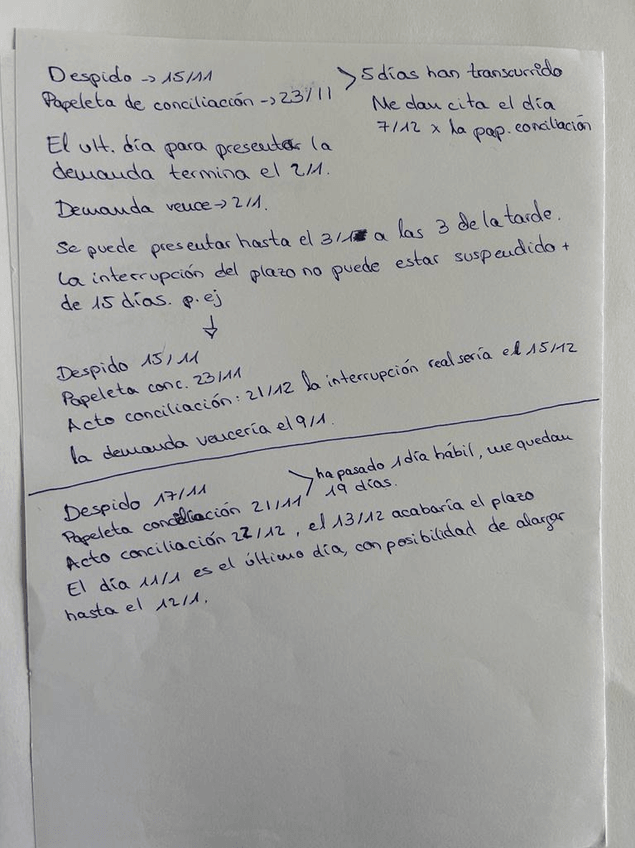 Despido -> 15/11
Papeleta de conciliación -> 23/11
> 5 días han transcurrido
Me dan cita el día
7/12 x la pap. conciliación
El ult. día para presentar la
demanda termina el 2/1.
Demanda vence -> 2/1.
Se puede presentar hasta el 3/1 a las 3 de la tarde.
La interrupción del plazo no puede estar suspendido +
de 15 días. p. ej
↓
Despido 15/11
Papeleta conc. 23/11
Acto conciliación: 21/12 la interrupción real sería el 15/12
la demanda vencería el 9/1.
Despido 17/11
Papeleta conciliación 21/11
> ha pasado 1 día hábil, me quedan
19 días.
Acto conciliación 22/12, el 13/12 acabaría el plazo
El día 11/1 es el último día, con posibilidad de alargar
hasta el 12/1.